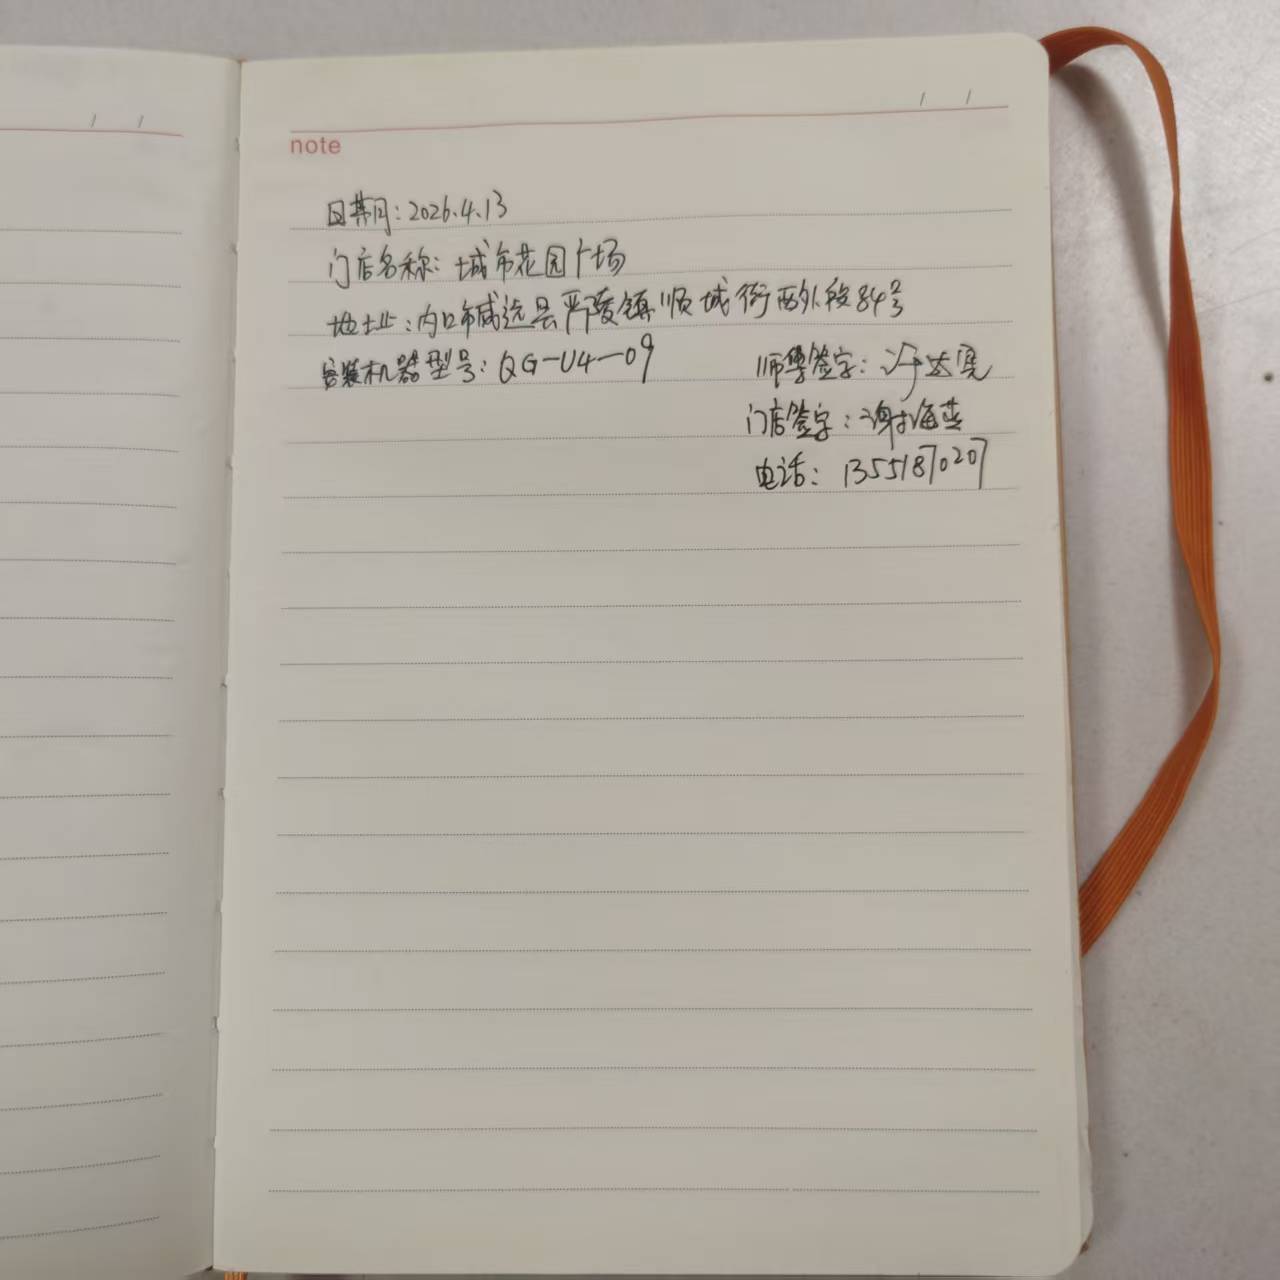 note
日期:2026.4.13
门店名称:城市花园广场
地址:内江市威远县严陵镇顺城街西外段84号
安装机器型号:QG-U4-09
师傅签字:冯达
门店签字:谢海燕
电话:13551870207